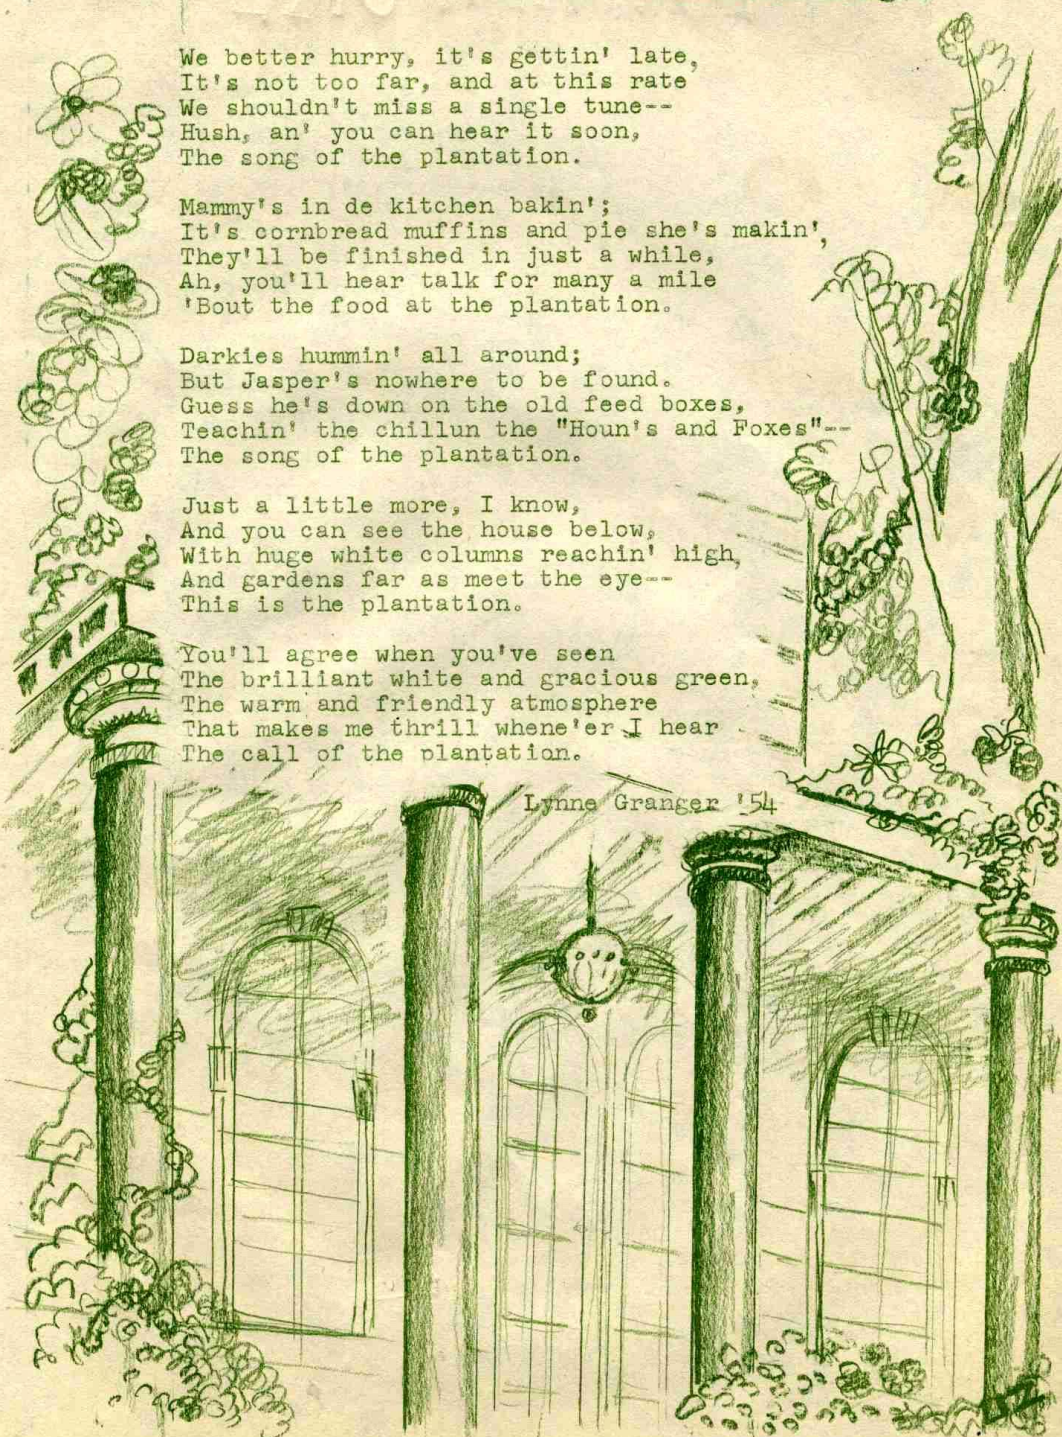 We better hurry, it's gettin' late,
It's not too far, and at this rate
We shouldn't miss a single tune--
Hush, an' you can hear it soon,
The song of the plantation.
Mammy's in de kitchen bakin';
It's cornbread muffins and pie she's makin',
They'll be finished in just a while,
Ah, you'll hear talk for many a mile
'Bout the food at the plantation.
Darkies hummin' all around;
But Jasper's nowhere to be found.
Guess he's down on the old feed boxes,
Teachin' the chillun the "Houn's and Foxes"--
The song of the plantation.
Just a little more, I know,
And you can see the house below,
With huge white columns reachin' high,
And gardens far as meet the eye--
This is the plantation.
You'll agree when you've seen
The brilliant white and gracious green,
The warm and friendly atmosphere
That makes me thrill whene'er I hear
The call of the plantation.
Lynne Granger '54